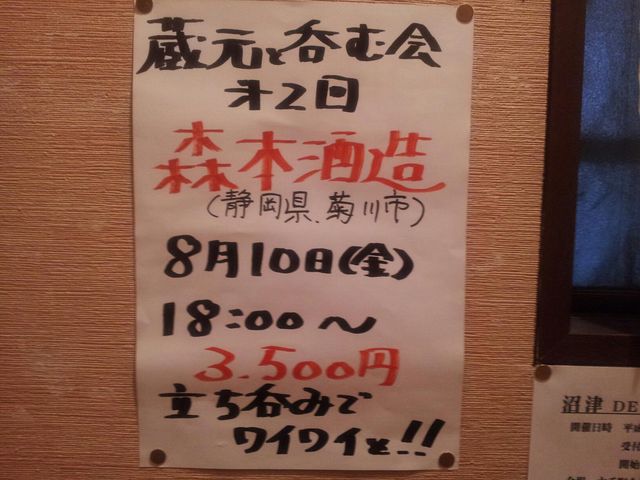 蔵元と呑む会
才2回
森本酒造
(静岡県、菊川市)
8月10日(金)
18:00〜
3.500円
立ち呑みで
ワイワイと!!
沼津 DE
開催日時 平成
受付
開始